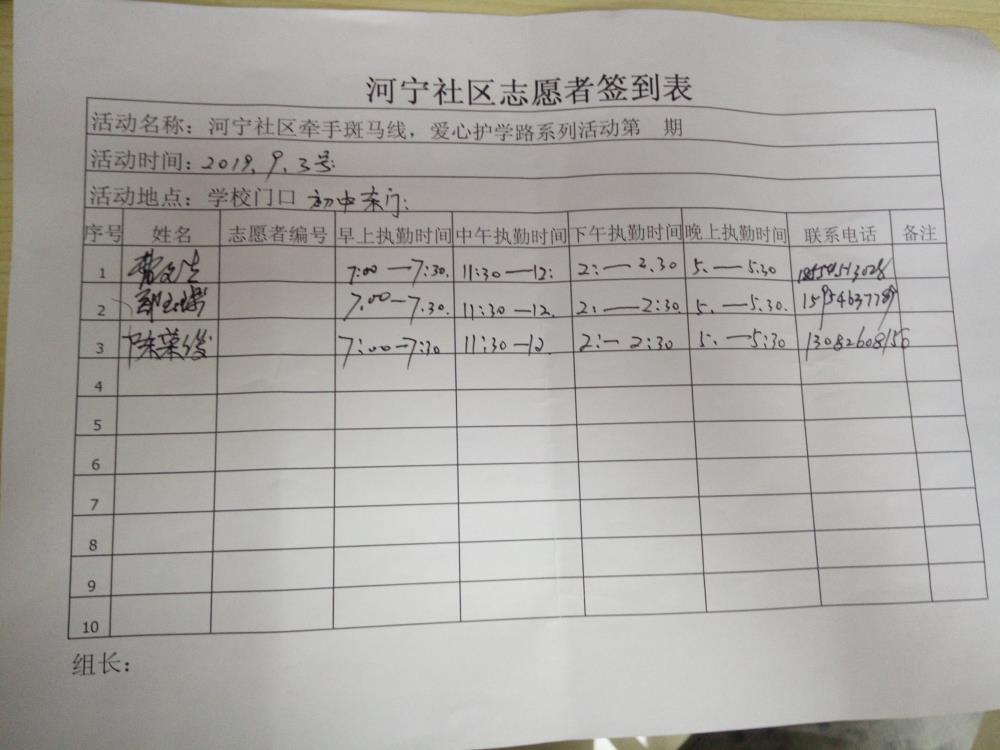 河宁社区志愿者签到表
活动名称：河宁社区牵手斑马线，爱心护学路系列活动第 期
活动时间：2019.9.3号
活动地点：学校门口 初中东门：
序号 姓名 志愿者编号 早上执勤时间 中午执勤时间 下午执勤时间 晚上执勤时间 联系电话 备注
1 7:00—7:30. 11:30—12: 2:—2.30 5.—5:30
2 7.00—7.30. 11:30—12. 2:—2:30 5.—5.30.
3 7:00—7:30 11:30—12 2:—2:30 5:—5:30 13082608156
4
5
6
7
8
9
10
组长：